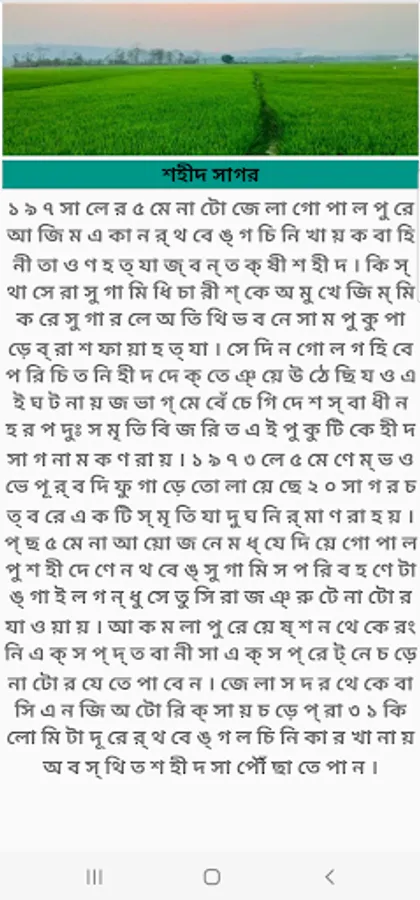 শহীদ সাগর
১৯৭সালের৫মেনাটোজেলাগোপালপুরে
আজিমএকানর্থবেঙ্গচিনিখায়কবাহি
নীতাওণহত্যাজ্বন্তক্ষীশহীদ।কিস্
থাসেরাসুগামিধিচারীশ্কেঅমুখেজিম্মি
করেসুগারলেঅতিথিভবনেসামপুকুপা
ড়েব্রাশফায়াহত্যা।সেদিনগোলগহিবে
পরিচিতনিহীদদেক্তেঞ্য়েউঠেছিযওএ
ইঘটনায়জভাগ্মেবেঁচেগিদেশস্বাধীন
হরপদুঃসমৃতিবিজরিতএইপুকুটিকেহীদ
সাগনামকণরায়।১৯৭৩লে৫মেণেম্ভও
ভেপূর্বদিফুগাড়েতোলায়েছে২০সাগরচ
ত্বরেএকটিস্মৃতিযাদুঘনির্মাণরাহয়।
প্ছ৫মেনাআয়োজনেমধ্যেদিয়েগোপাল
পুশহীদেণেনথবেঙ্সুগামিসপরিবহণেটা
ঙ্গাইলগন্ধুসেতুসিরাজঞ্রুটেনাটোর
যাওয়ায়।আকমলাপুরেয়েষ্শনথেকেরং
নিএক্সপ্দ্তবানীসাএক্সপ্রেট্নেচড়ে
নাটোরযেতেপাবেন।জেলাসদরথেকেবা
সিএনজিঅটোরিক্সায়চড়েপ্রা৩১কি
লোমিটাদূরের্থবেঙ্গলচিনিকারখানায়
অবস্থিতশহীদসাপৌঁছাতেপান।